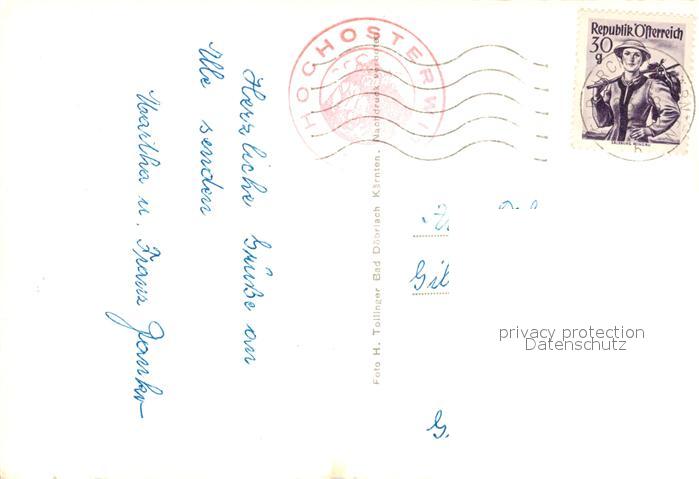 Herzliche Grüße an
Alle senden
Martha u. Franz
HOCHOSTERWI
Foto H. Tollinger Bad Döbriach Kärnten. Nachdruck verboten
Republik Österreich
30
g
G.
privacy protection
Datenschutz